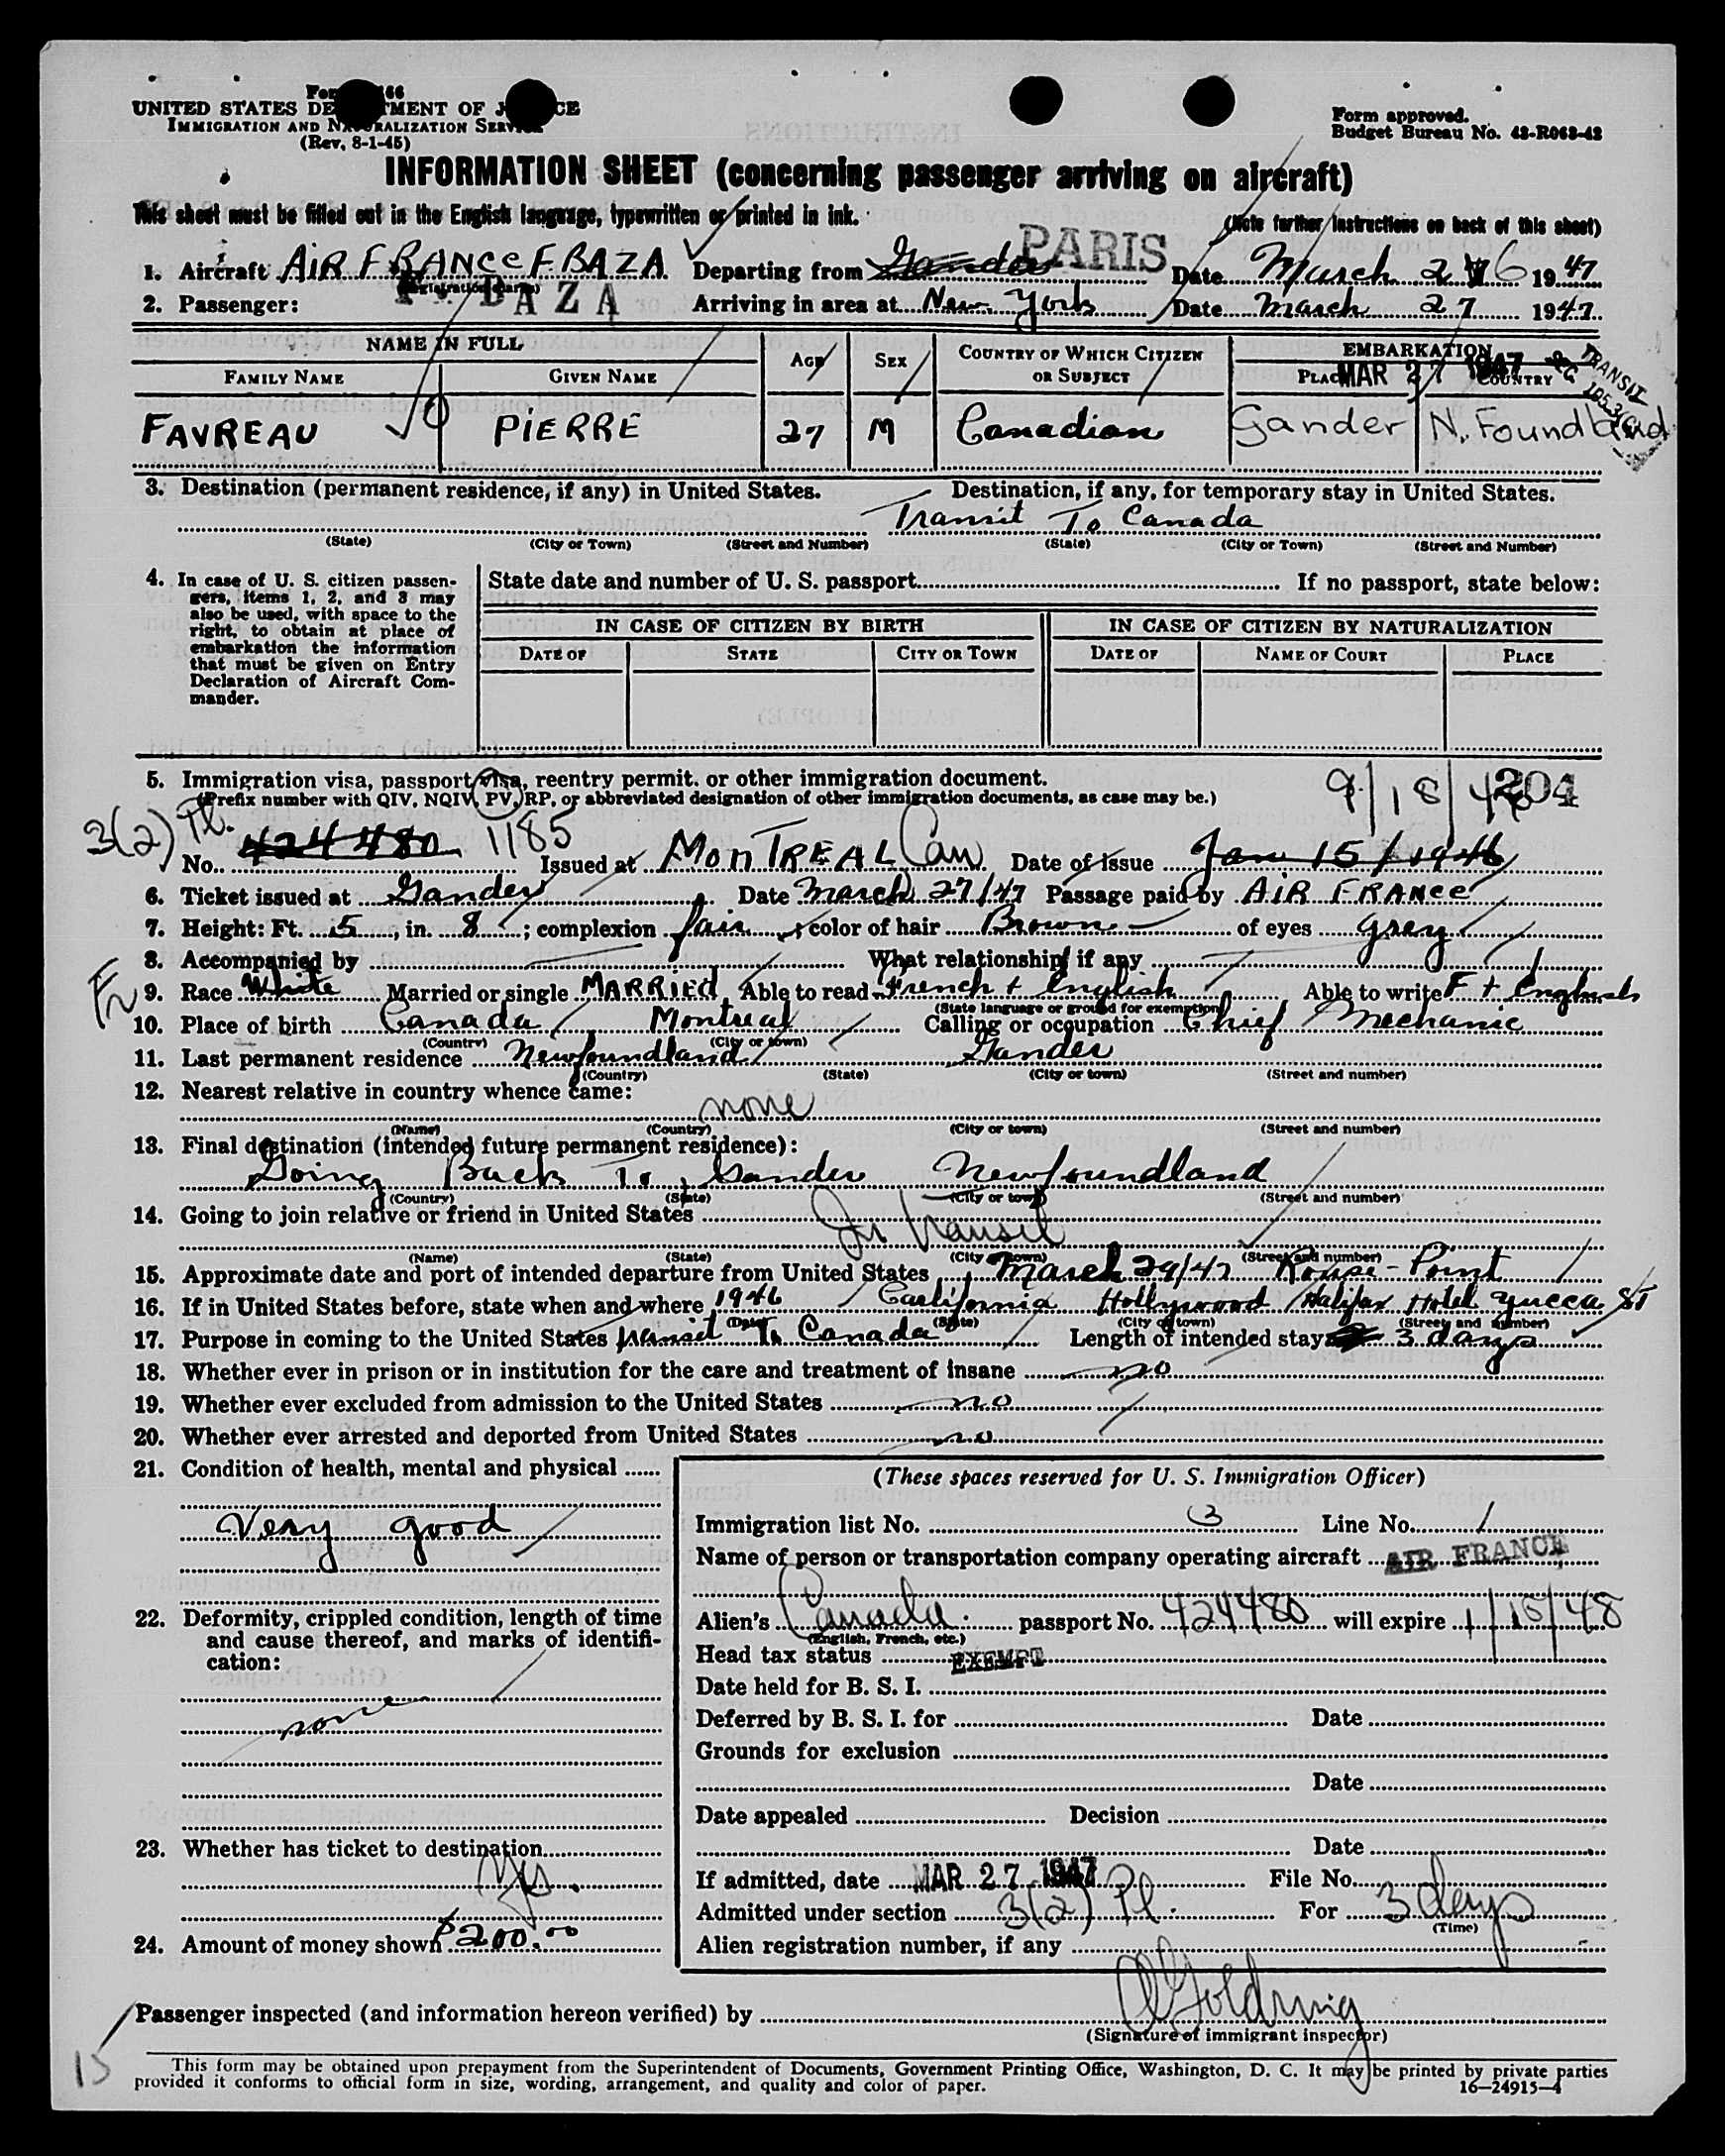 UNITED STATES DE MENT OF J CE
IMMIGRATION AND NATURALIZATION SERVICE
(Rev. 8-1-45)
Form approved.
Budget Bureau No. 43-R063-42
INFORMATION SHEET (concerning passenger arriving on aircraft)
This sheet must be filled out in the English language, typewritten or printed in ink.
(Note further instructions on back of this sheet)
1. Aircraft AIR FRANCE F BAZA Departing from Gander PARIS Date March 26 1947
(Registration marks)
F. BAZA
2. Passenger: Arriving in area at New York Date March 27 1947
NAME IN FULL AGE SEX COUNTRY OF WHICH CITIZEN OR SUBJECT EMBARKATION
FAMILY NAME GIVEN NAME PLACE COUNTRY
MAR 27 1947
TRANSIT
FAVREAU PIERRE 27 M Canadian Gander N. Foundland
3. Destination (permanent residence, if any) in United States. Destination, if any, for temporary stay in United States.
Transit To Canada
(State) (City or Town) (Street and Number) (State) (City or Town) (Street and Number)
4. In case of U. S. citizen passen-
gers, items 1, 2, and 3 may
also be used, with space to the
right, to obtain at place of
embarkation the information
that must be given on Entry
Declaration of Aircraft Com-
mander.
State date and number of U. S. passport If no passport, state below:
IN CASE OF CITIZEN BY BIRTH IN CASE OF CITIZEN BY NATURALIZATION
DATE OF STATE CITY OR TOWN DATE OF NAME OF COURT PLACE
5. Immigration visa, passport visa, reentry permit, or other immigration document.
(Prefix number with QIV, NQIV, PV, RP, or abbreviated designation of other immigration documents, as case may be.)
9/18/46 204
3(2) Pl.
No. 424480 1185 Issued at MONTREAL Can Date of issue Jan 15/1946
6. Ticket issued at Gander Date March 27/47 Passage paid by AIR FRANCE
7. Height: Ft. 5, in. 8; complexion fair; color of hair Brown of eyes grey
8. Accompanied by What relationship if any
Fr
9. Race White Married or single MARRIED Able to read French + English Able to write F + English
(State language or ground for exemption)
10. Place of birth Canada Montreal Calling or occupation Chief Mechanic
(Country) (City or town)
11. Last permanent residence Newfoundland Gander
(Country) (State) (City or town) (Street and number)
12. Nearest relative in country whence came:
none
(Name) (Country) (City or town) (Street and number)
13. Final destination (intended future permanent residence):
Going Back To Gander Newfoundland
(Country) (State) (City or town) (Street and number)
14. Going to join relative or friend in United States
In transit
(Name) (State) (City or town) (Street and number)
15. Approximate date and port of intended departure from United States March 29/47 Rouse-Point
16. If in United States before, state when and where 1946 California Hollywood Halifax Hotel Yucca St
(Date) (State) (City or town) (Street and number)
17. Purpose in coming to the United States transit To Canada Length of intended stay 3 days
18. Whether ever in prison or in institution for the care and treatment of insane no
19. Whether ever excluded from admission to the United States no
20. Whether ever arrested and deported from United States no
21. Condition of health, mental and physical
Very good
22. Deformity, crippled condition, length of time
and cause thereof, and marks of identifi-
cation:
none
23. Whether has ticket to destination
Yes.
24. Amount of money shown $200.00
(These spaces reserved for U. S. Immigration Officer)
Immigration list No. 3 Line No. 1
Name of person or transportation company operating aircraft AIR FRANCE
Alien's Canada passport No. 424480 will expire 1/15/48
(English, French, etc.)
Head tax status EXEMPT
Date held for B. S. I.
Deferred by B. S. I. for Date
Grounds for exclusion
Date
Date appealed Decision
Date
If admitted, date MAR 27 1947 File No.
Admitted under section 3(2) Pl. For 3 days
(Time)
Alien registration number, if any
Passenger inspected (and information hereon verified) by
(Signature of immigrant inspector)
15
This form may be obtained upon prepayment from the Superintendent of Documents, Government Printing Office, Washington, D. C. It may be printed by private parties
provided it conforms to official form in size, wording, arrangement, and quality and color of paper. 16—24915-4